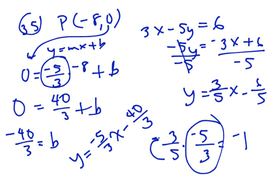 35) P(-8,0)
y=mx+b
0=-5/3·-8+b
0=40/3+b
-40/3=b
y=-5/3x-40/3
3x-5y=6
-5y/-5=-3x+6/-5
y=3/5x-6/5
3/5·-5/3=-1